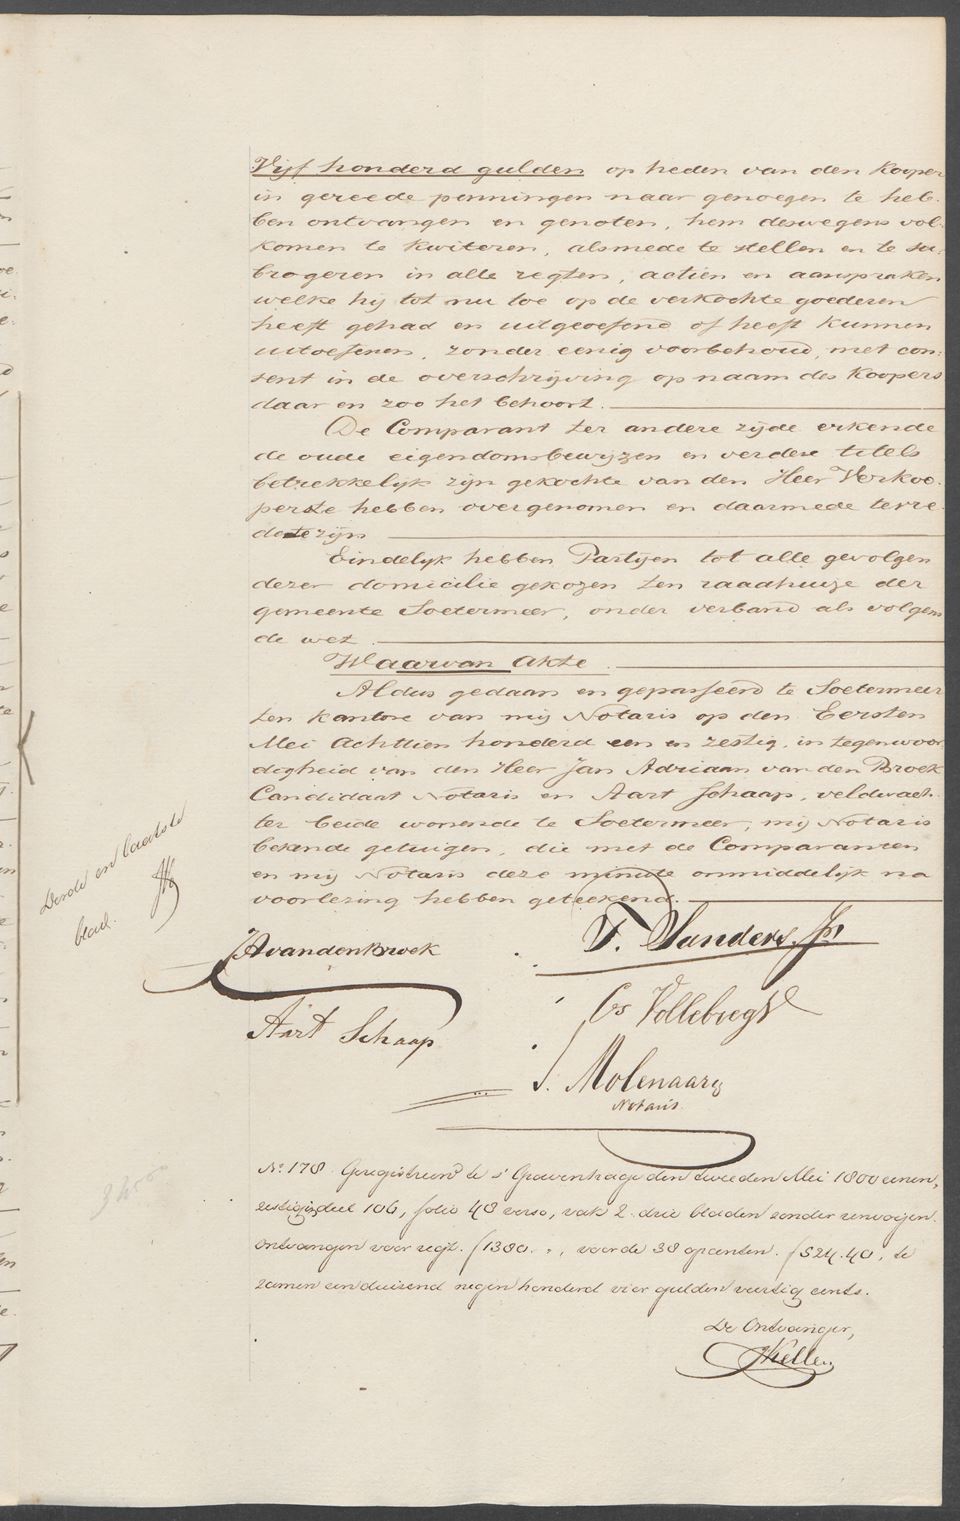 Vijf honderd gulden op heden van den Kooper
in gereede penningen naar genoegen te heb-
ben ontvangen en genoten, hem deswegens vol-
komen te kwiteren, alsmede te stellen en te su-
brogeren in alle regten, actien en aanspraken
welke hij tot nu toe op de verkochte goederen
heeft gehad en uitgeoefend of heeft kunnen
uitoefenen, zonder eenig voorbehoud, met con-
sent in de overschrijving op naam des Koopers
daar en zoo het behoort.
De Comparant ter andere zijde erkende
de oude eigendomsbewijzen en verdere titels
betrekkelijk zijn gekochte van den Heer Verkoo-
per te hebben overgenomen en daarmede tevre-
de te zijn
Eindelijk hebben Partijen tot alle gevolgen
dezer domicilie gekozen ten raadhuize der
gemeente Soetermeer, onder verband als volgens
de wet.
Waarvan Akte.
Aldus gedaan en gepasseerd te Soetermeer
ten kantore van mij Notaris op den Eersten
Mei Achttien honderd een en zestig, in tegenwoor-
digheid van den Heer Jan Adriaan van den Broek
Candidaat Notaris en Aart Schaap, veldwach-
ter beide wonende te Soetermeer, mij Notaris
bekende getuigen, die met de Comparanten
en mij Notaris deze minute onmiddelijk na
voorlezing hebben geteekend.
Derde en laatste
blad.
JAvandenBroek
T. Sanders Jr
Cs Vollebregt
Aart Schaap
J. Molenaar
Notaris
No 178 Geregistreerd te 's Gravenhage den tweeden Mei 1800 eenen,
zestig, deel 106, folio 48 verso, vak 2. drie bladen zonder renvooijen.
Ontvangen voor regt. f 1380. „, voor de 38 opcenten. f 524.40, te
zamen een duizend negen honderd vier gulden veertig cents.
De Ontvanger,